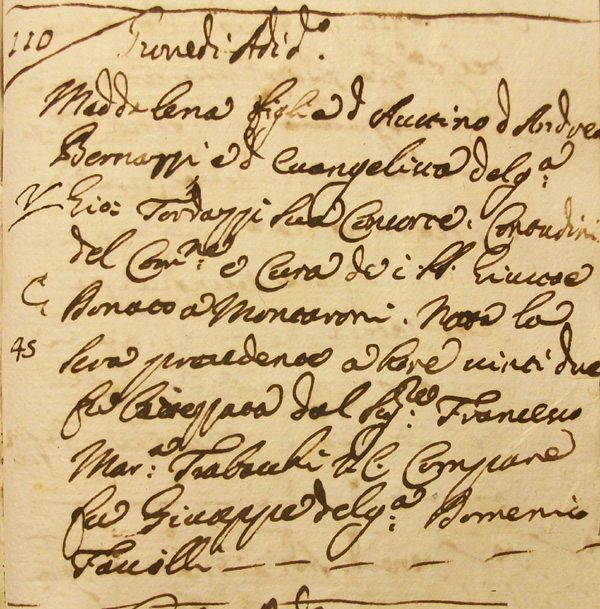 110 Lunedi Adi dº.
Maddalena figlia d Austino d Andrea
Bernazzi e d Euangelista del qª:
V Gio: Tordazzi sua Consorte. Contadini
del Comne: e Cura de i SS. Giuseppe
C. Bonato a Montaroni. Nata la
45 sera precedente a hore uinti due
fu Battezzata dal Sigre: Francesco
Marª: Trabochi d C. Compare
fu Giuseppe del qª: Domenico
Fauilli